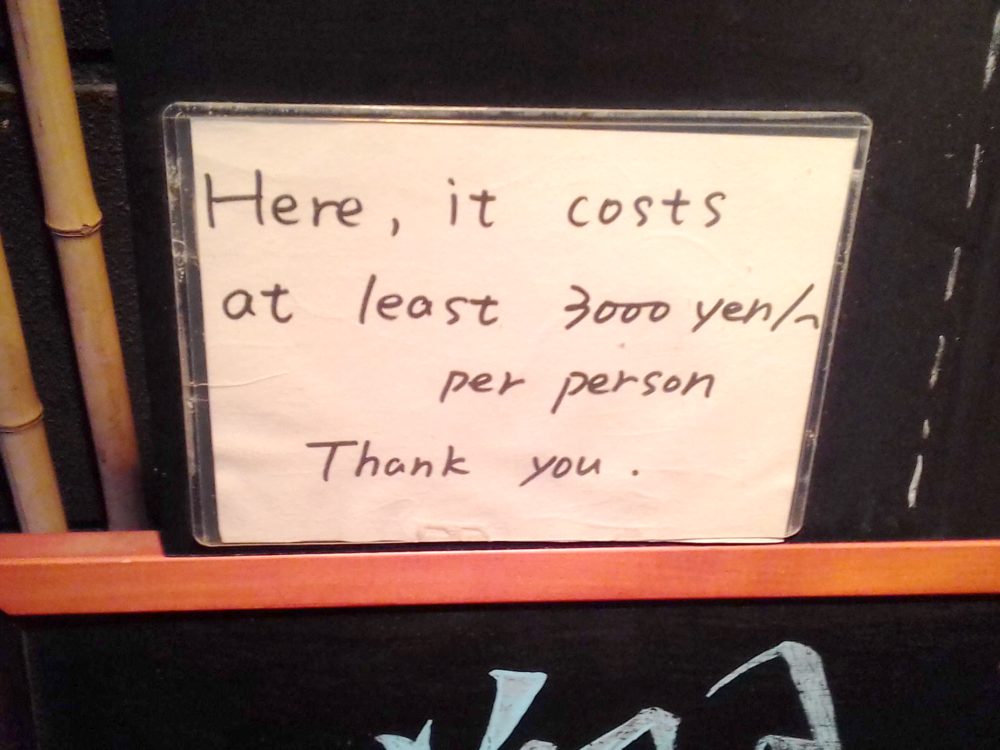 Here, it costs
at least 3000 yen/~
per person
Thank you.